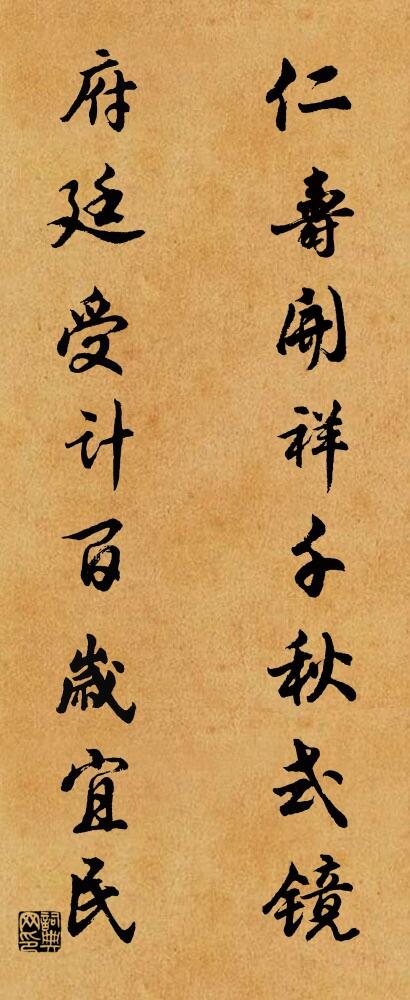 仁壽開祥千秋式镜
府廷受计百歲宜民
詞典网印